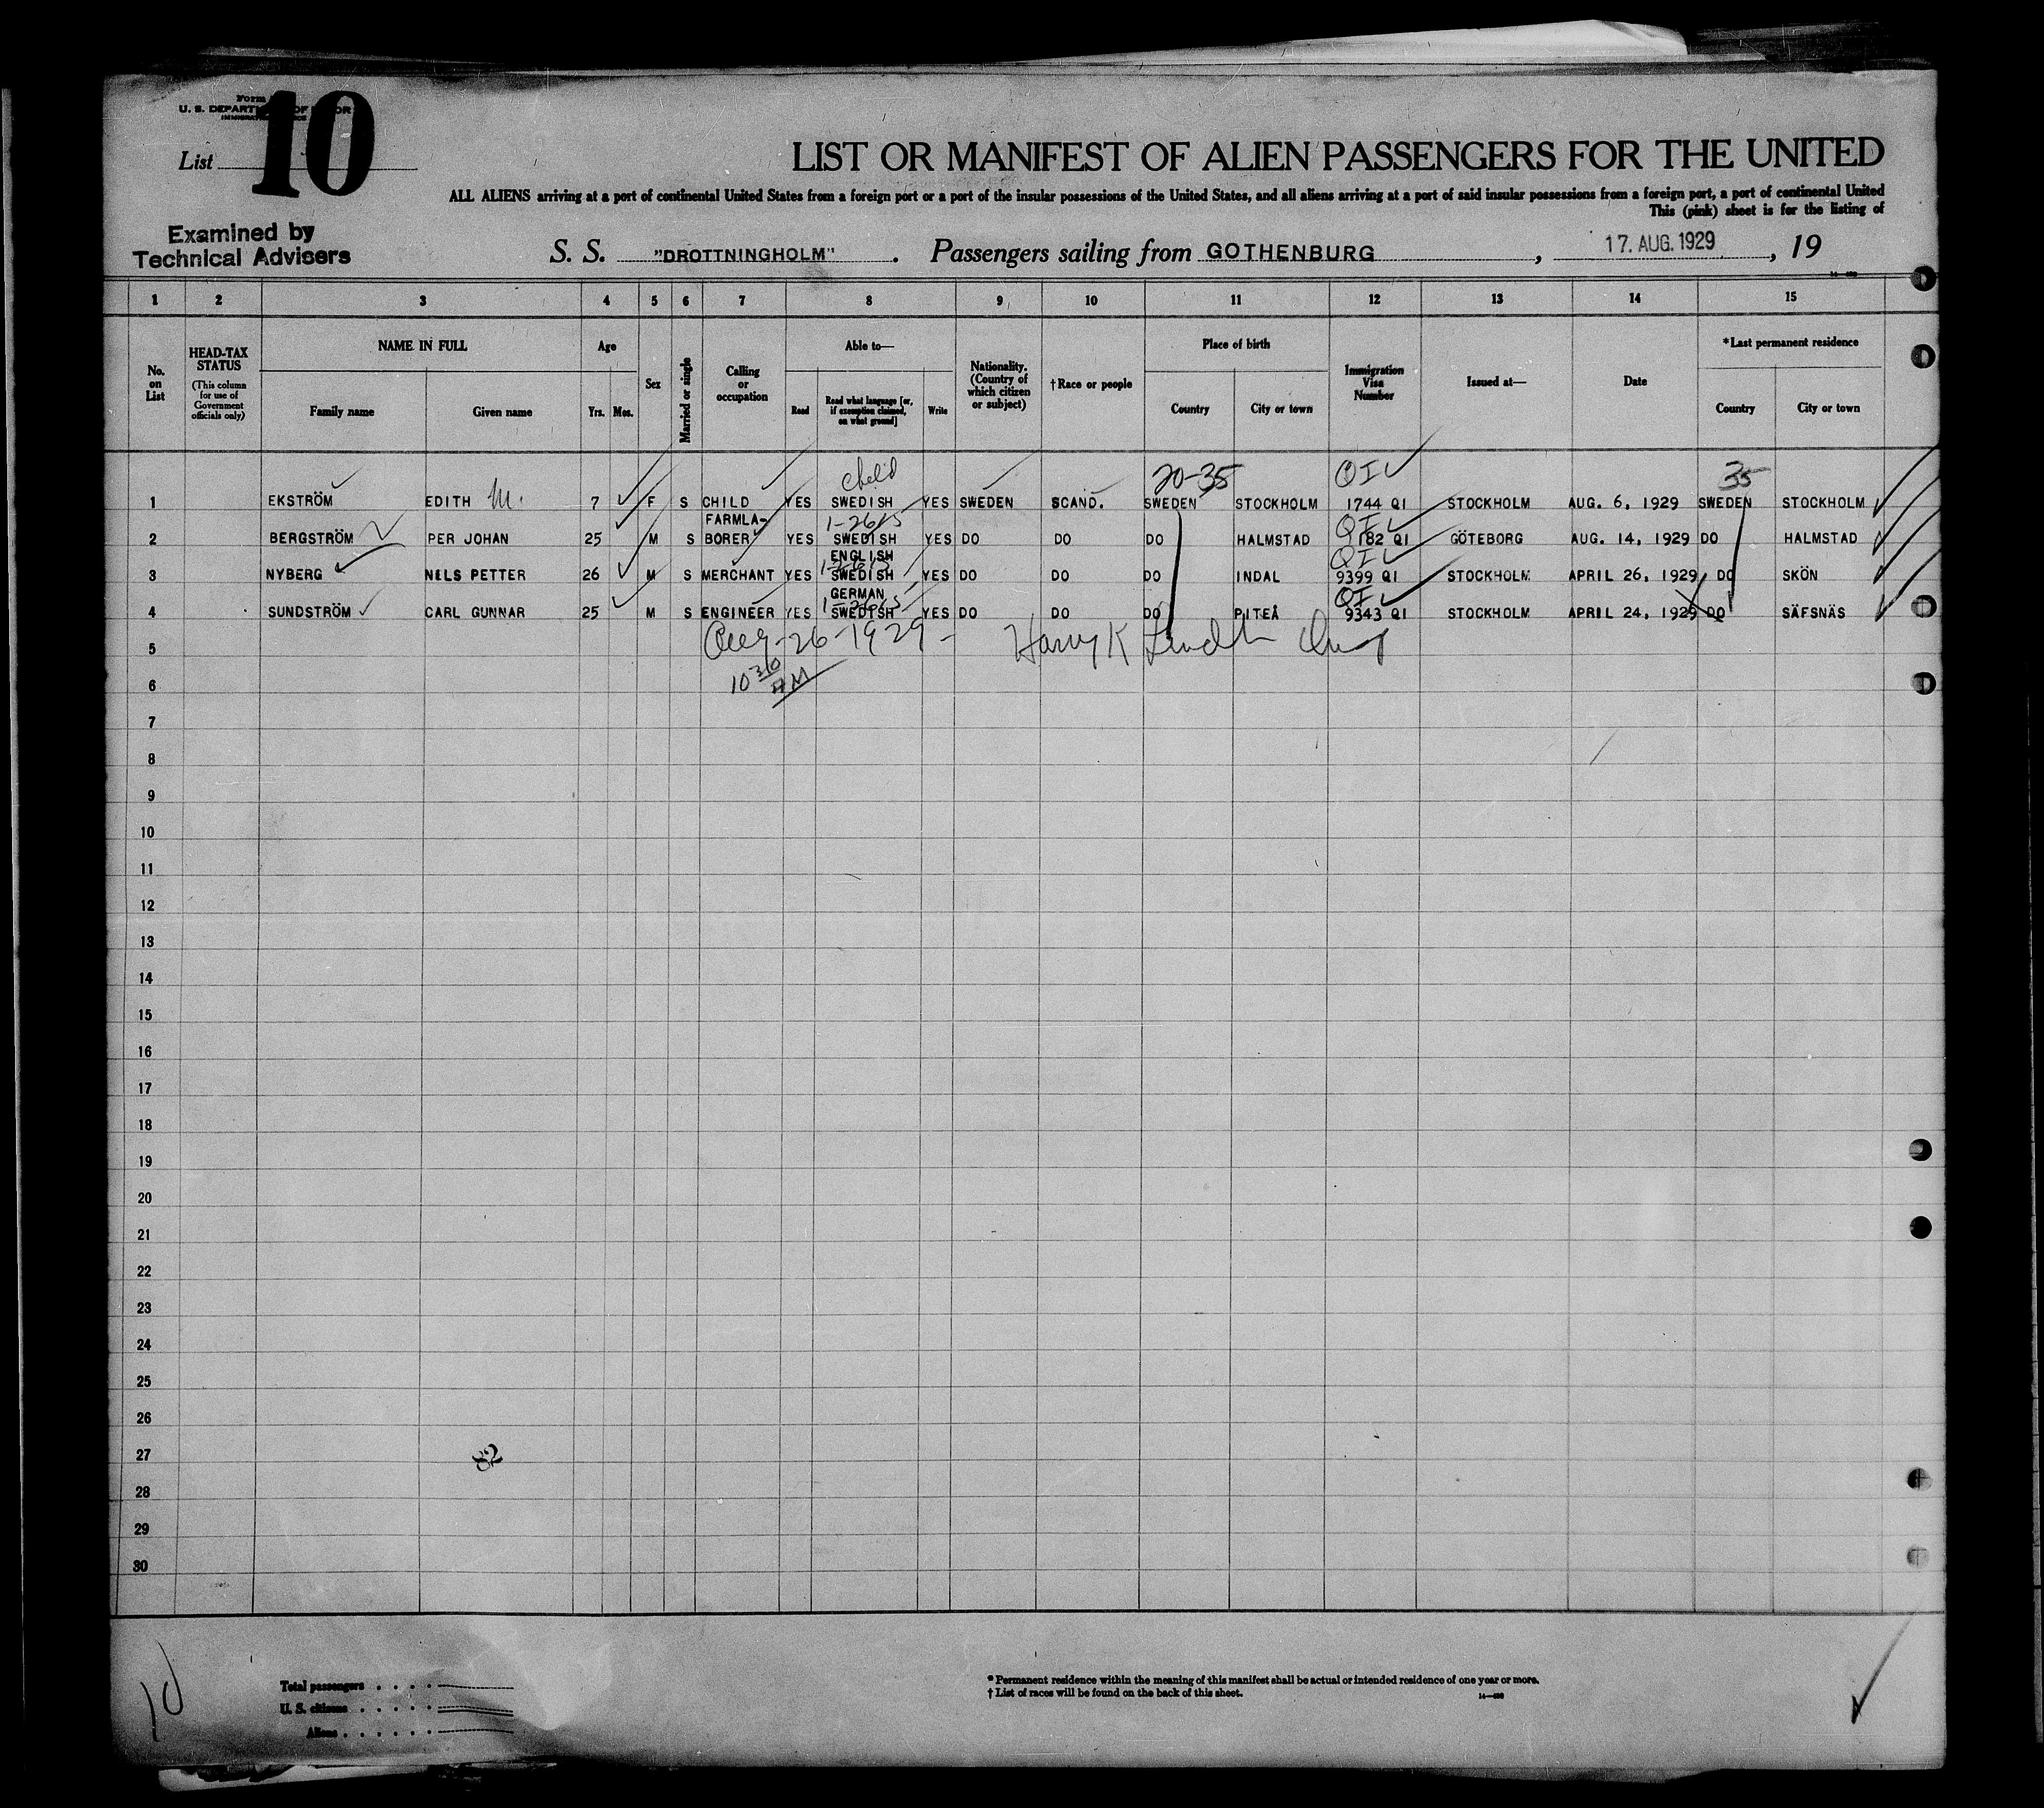 Form
U. S. DEPARTMENT OF LABOR
IMMIGRATION SERVICE
List 10
LIST OR MANIFEST OF ALIEN PASSENGERS FOR THE UNITED
ALL ALIENS arriving at a port of continental United States from a foreign port or a port of the insular possessions of the United States, and all aliens arriving at a port of said insular possessions from a foreign port, a port of continental United
This (pink) sheet is for the listing of
Examined by
Technical Advisers
S. S. "DROTTNINGHOLM". Passengers sailing from GOTHENBURG, 17. AUG. 1929, 19
1 2 3 4 5 6 7 8 9 10 11 12 13 14 15
No. on List
HEAD-TAX STATUS (This column for use of Government officials only)
NAME IN FULL
Family name Given name
Age
Yrs. Mos.
Sex
Married or single
Calling or occupation
Able to—
Read
Read what language [or, if exemption claimed, on what ground]
Write
Nationality. (Country of which citizen or subject)
† Race or people
Place of birth
Country City or town
Immigration Visa Number
Issued at—
Date
* Last permanent residence
Country City or town
child 20-35 QI 35
1 EKSTRÖM EDITH M. 7 F S CHILD YES SWEDISH YES SWEDEN SCAND. SWEDEN STOCKHOLM 1744 QI STOCKHOLM AUG. 6, 1929 SWEDEN STOCKHOLM
FARMLA- QI
2 BERGSTRÖM PER JOHAN 25 M S BORER YES SWEDISH YES DO DO DO HALMSTAD 182 QI GÖTEBORG AUG. 14, 1929 DO HALMSTAD
ENGLISH QI
3 NYBERG NILS PETTER 26 M S MERCHANT YES SWEDISH YES DO DO DO INDAL 9399 QI STOCKHOLM APRIL 26, 1929 DO SKÖN
GERMAN QI
4 SUNDSTRÖM CARL GUNNAR 25 M S ENGINEER YES SWEDISH YES DO DO DO PITEÅ 9343 QI STOCKHOLM APRIL 24, 1929 DO SÄFSNÄS
5 Aug-26-1929- Harry K
6 10 30 AM
7
8
9
10
11
12
13
14
15
16
17
18
19
20
21
22
23
24
25
26
27
82
28
29
30
10
Total passengers
U. S. citizens
Aliens
* Permanent residence within the meaning of this manifest shall be actual or intended residence of one year or more.
† List of races will be found on the back of this sheet.